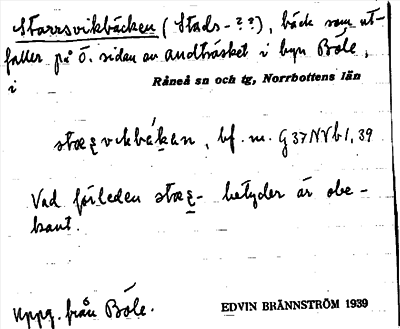 Starrsvikbäcken (Stads-??), bäck som ut-
faller på Ö. sidan av Andträsket i byn Böle,
i Råneå sn och tg, Norrbottens län
bf. m. G37NVb1,39
Vad förleden stæꝛ- betyder är obe-
kant.
Uppg. från Böle.
EDVIN BRÄNNSTRÖM 1939